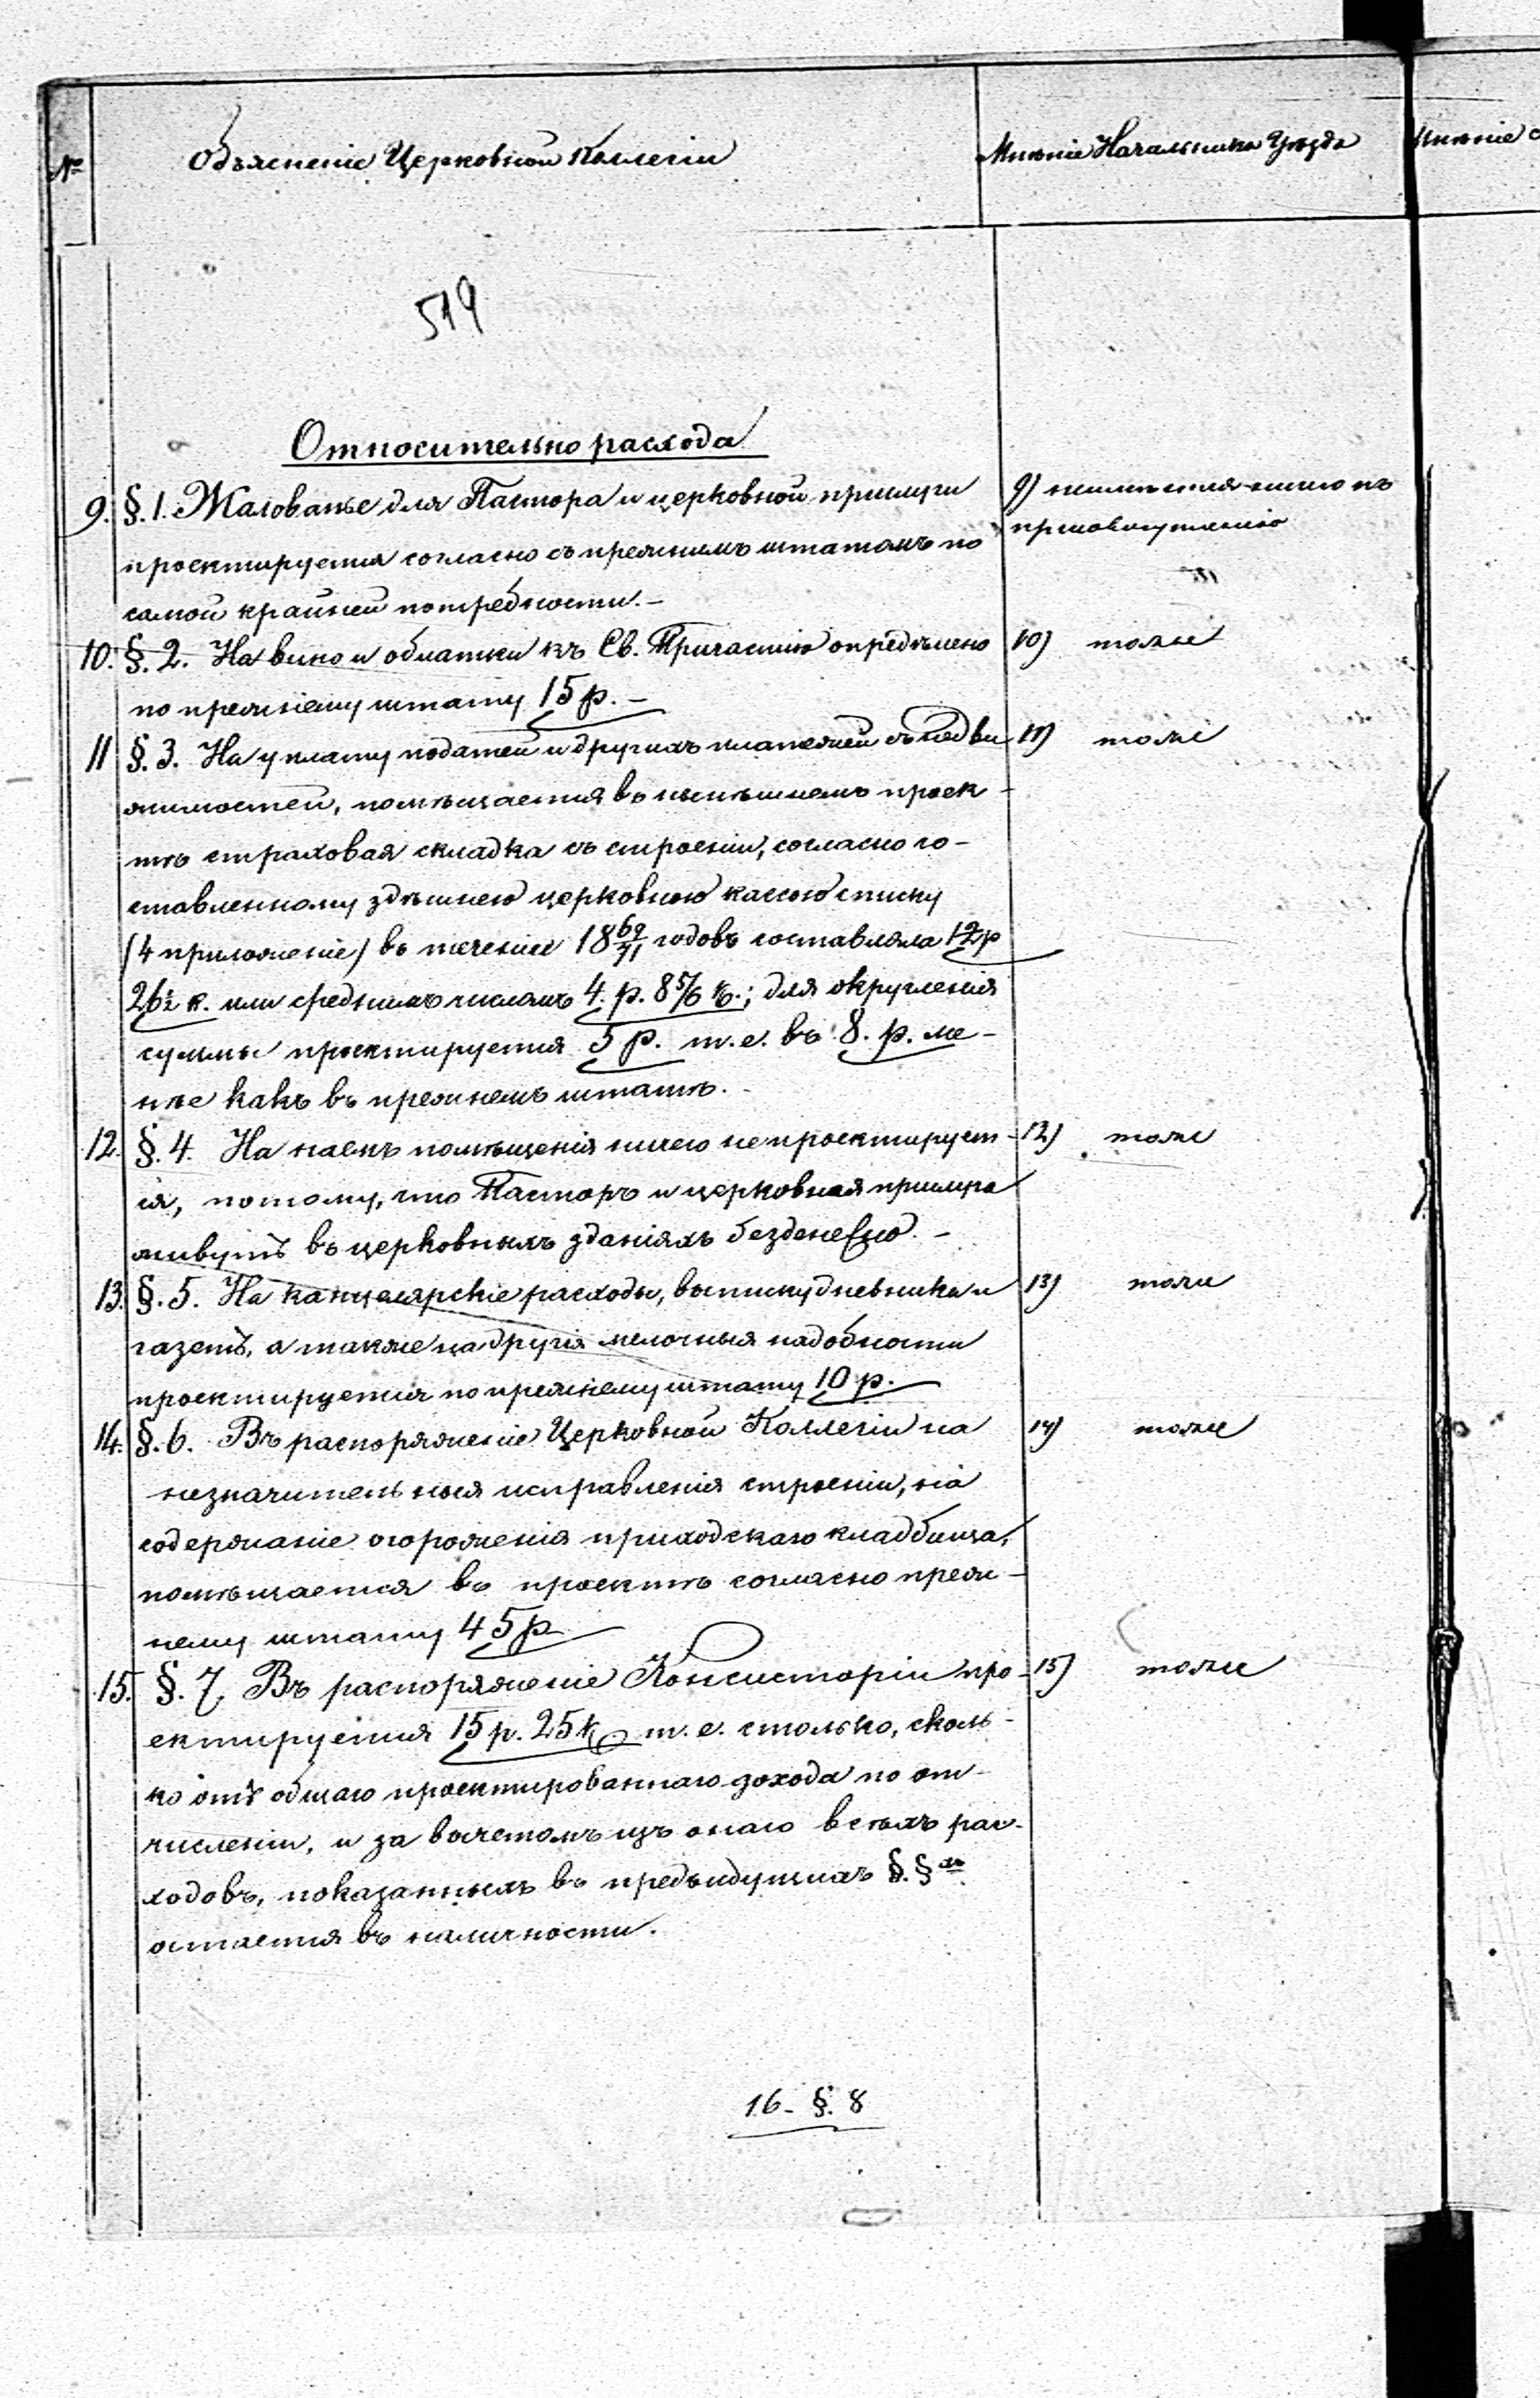 №
Объясненіе Церковной Коллегіи
Мнѣніе Начальника Уѣзда
Мнѣніе
519
Относительно расхода
9. §. 1. Жалованье для Пастора и церковной прислуги
проектируется согласно съ прежнимъ штатомъ по
самой крайней потребности. –
9) неимѣется ничего къ
присовокупленію
10. §. 2. На вино и облатки къ Св. Причастію опредѣлено
по прежнему штату 15 р. –
10) тоже
11 §. 3. На уплату податей и другихъ платежей съ недви
жимостей, помѣщается въ нынѣшнемъ проек-
тѣ страховая складка съ строеніи, согласно со-
ставленному здѣшнею церковною кассою списку
(4 приложеніе) въ теченіи 18 69/71 годовъ составляла 12 р
26½ к. или среднимъ числомъ 4. р. 8 5/6 к.; для округленія
суммы проектируется 5 р. т. е. въ 8. р. ме-
нѣе какъ въ прежнемъ штатѣ. –
11) тоже
12. §. 4. На наемъ помѣщенія ничего не проектирует-
ся, потому, что Пасторъ и церковная прислуга
живутъ въ церковныхъ зданіяхъ безденежно. –
12) тоже
13. §. 5. На канцелярскіе расходы, выписку дневника и
газетъ, а также на другія мелочныя надобности
проектируется по прежнему штату 10 р. –
13) тоже
14. §. 6. Въ распоряженіе Церковной Коллегіи на
незначительныя исправленія строеніи, на
содержаніе огороженія приходскаго кладбища,
помѣщается въ проектѣ согласно преж-
нему штату 45 р
14) тоже
15. §. 7. Въ распоряженіе Консисторіи про-
ектируется 15 р. 25 к. т. е. столько, сколь-
ко отъ общаго проектированнаго дохода по от-
численіи, и за вычетомъ изъ онаго всѣхъ рас-
ходовъ, показанныхъ въ предъидущихъ §. §хъ
остается въ наличности.
15) тоже
16 - §. 8